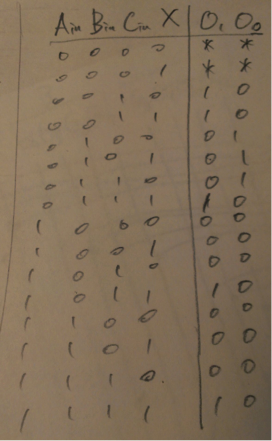 Ain Bin Cin X O1 O0
0 0 0 0 * *
0 0 0 1 * *
0 0 1 0 1 0
0 0 1 1 1 0
0 1 0 0 0 1
0 1 0 1 0 1
0 1 1 0 0 1
0 1 1 1 1 0
1 0 0 0 0 0
1 0 0 1 0 0
1 0 1 0 0 0
1 0 1 1 1 0
1 1 0 0 0 0
1 1 0 1 0 0
1 1 1 0 0 0
1 1 1 1 1 0